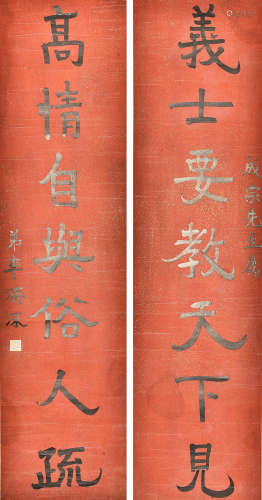 義士要教天下見
成宗先生屬
高情自與俗人疏
弟李